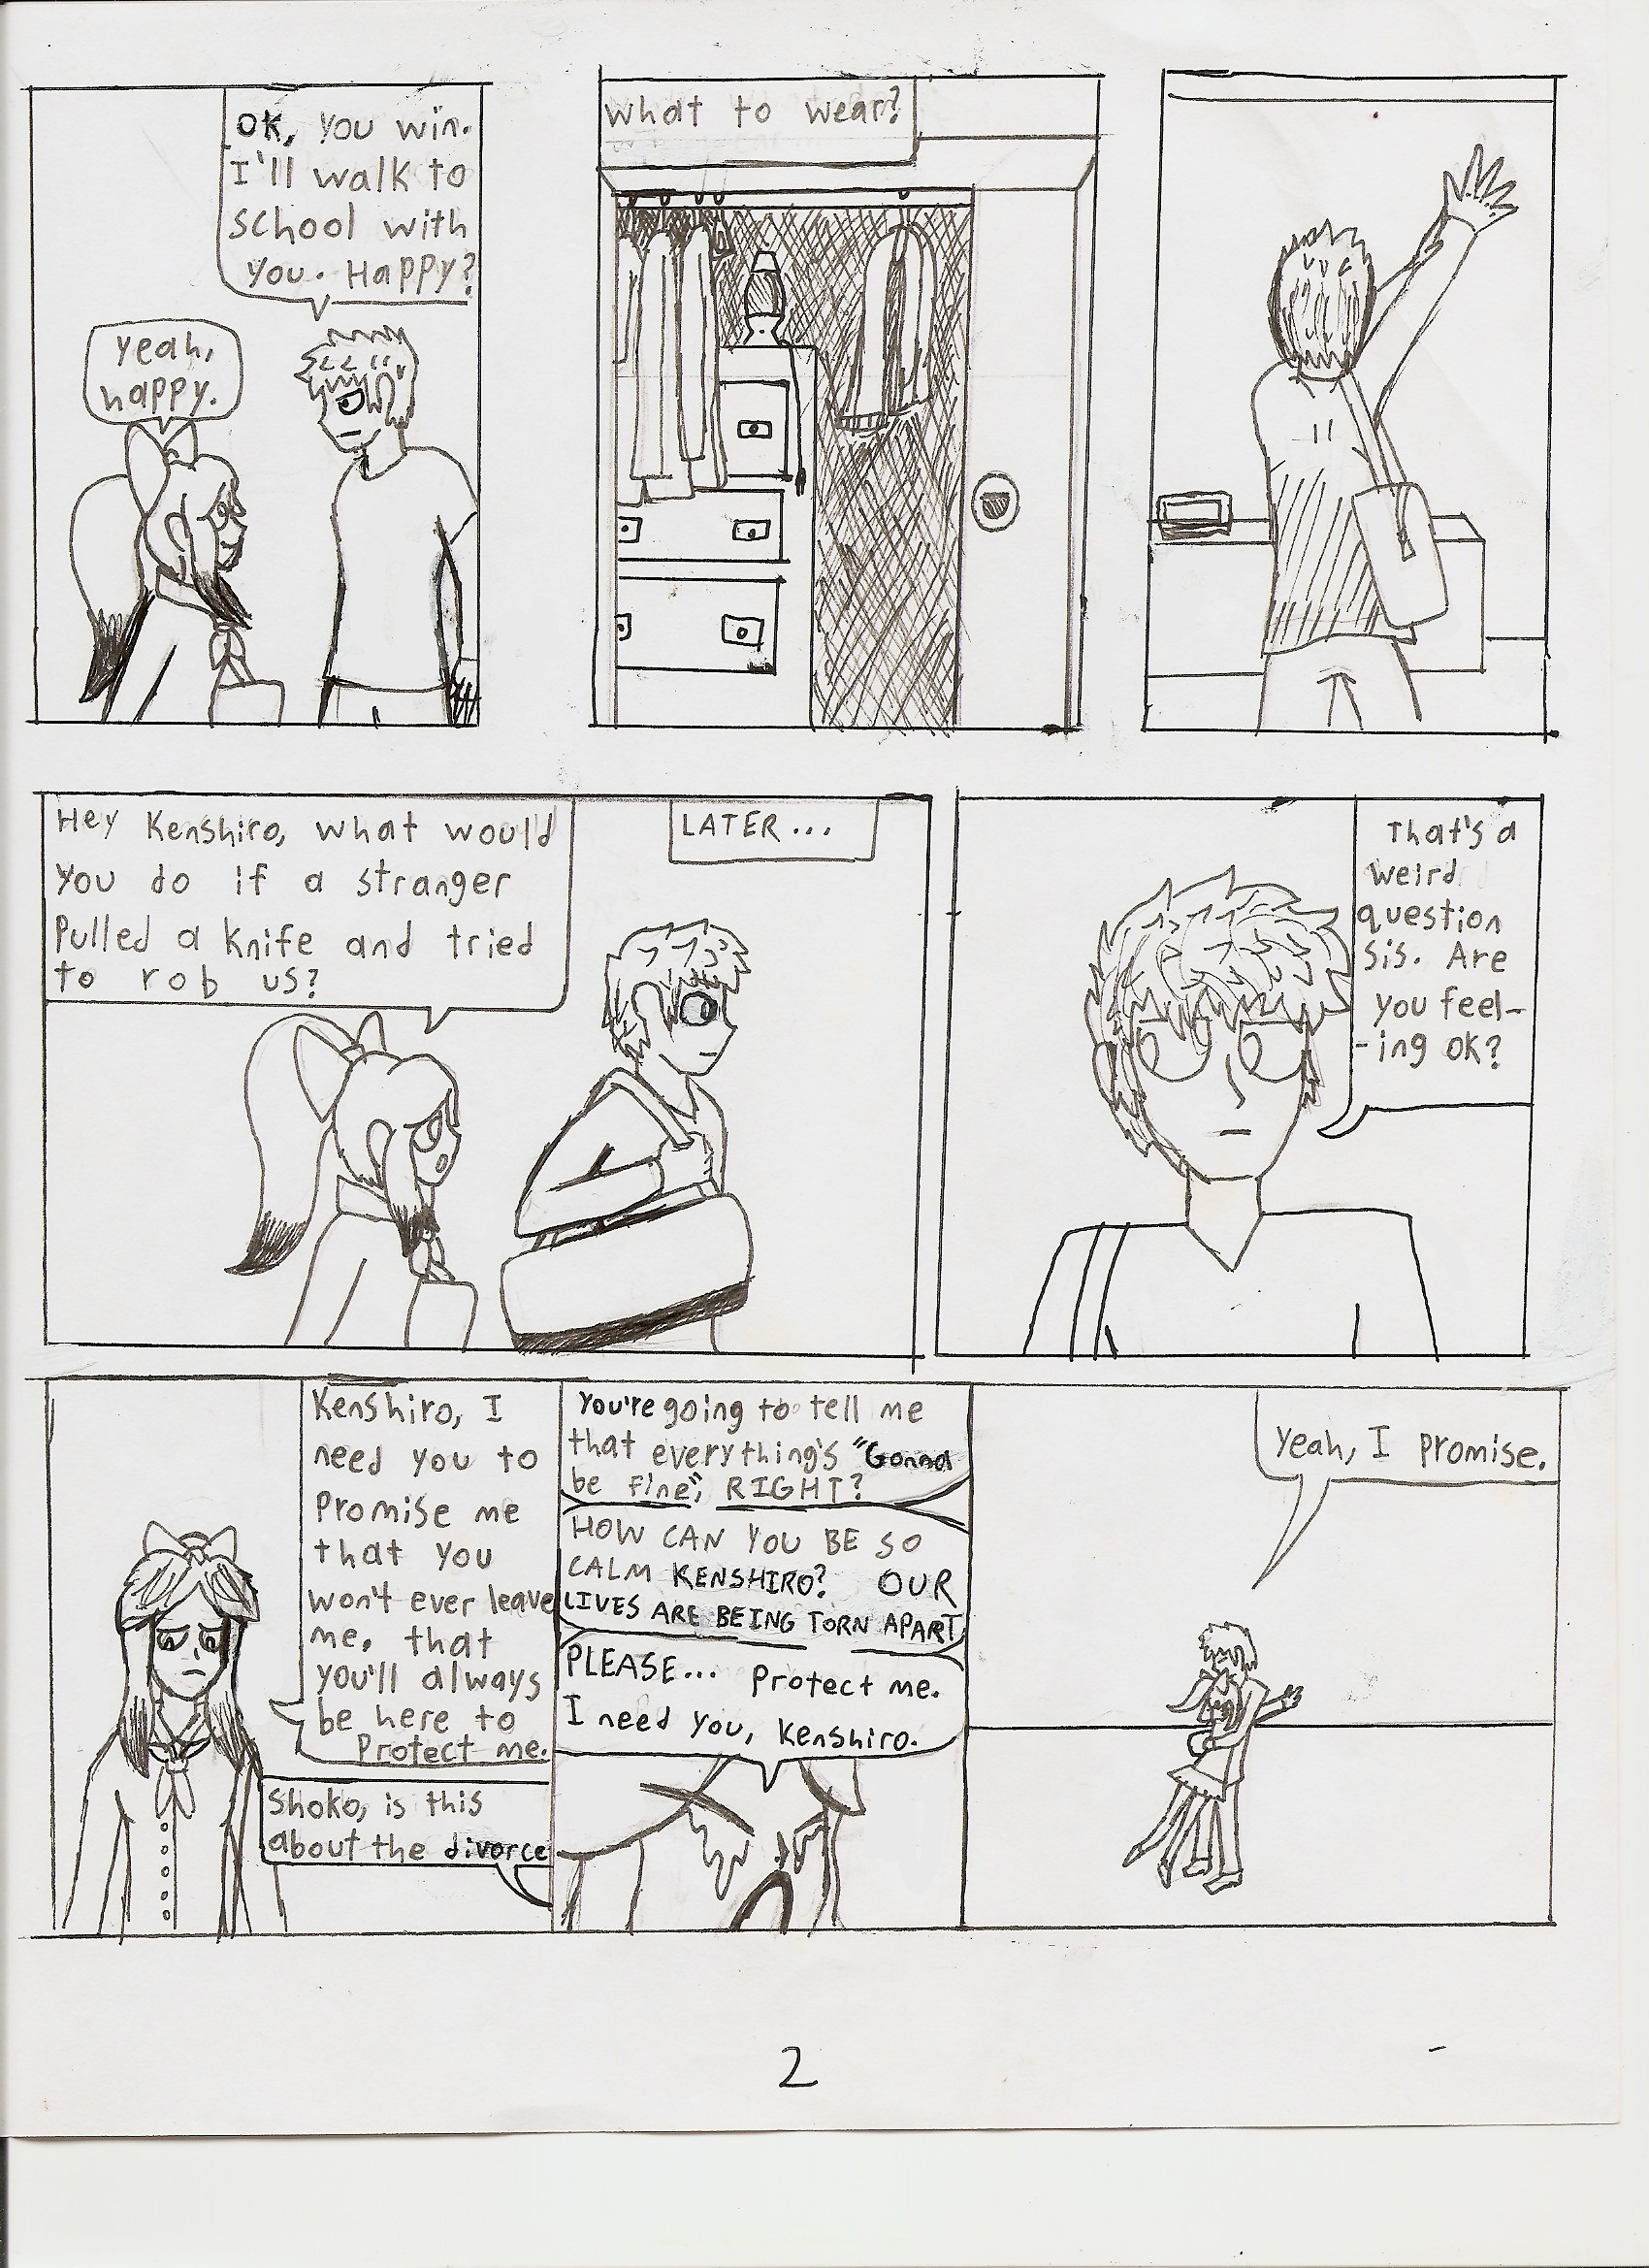 OK, you win.
I'll walk to
school with
you. Happy?
Yeah,
happy.
What to wear?
Hey Kenshiro, what would
you do if a stranger
pulled a knife and tried
to rob us?
LATER...
That's a
weird
question
sis. Are
you feel-
-ing ok?
Kenshiro, I
need you to
promise me
that you
won't ever leave
me. that
you'll always
be here to
protect me.
Shoko, is this
about the divorce
You're going to tell me
that everything's "Gonna
be fine", RIGHT?
HOW CAN YOU BE SO
CALM KENSHIRO? OUR
LIVES ARE BEING TORN APART
PLEASE... Protect me.
I need you, Kenshiro.
Yeah, I promise.
2